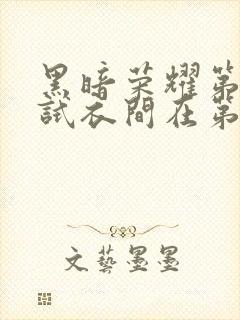 黑暗荣耀第
試衣間在第
文藝墨墨